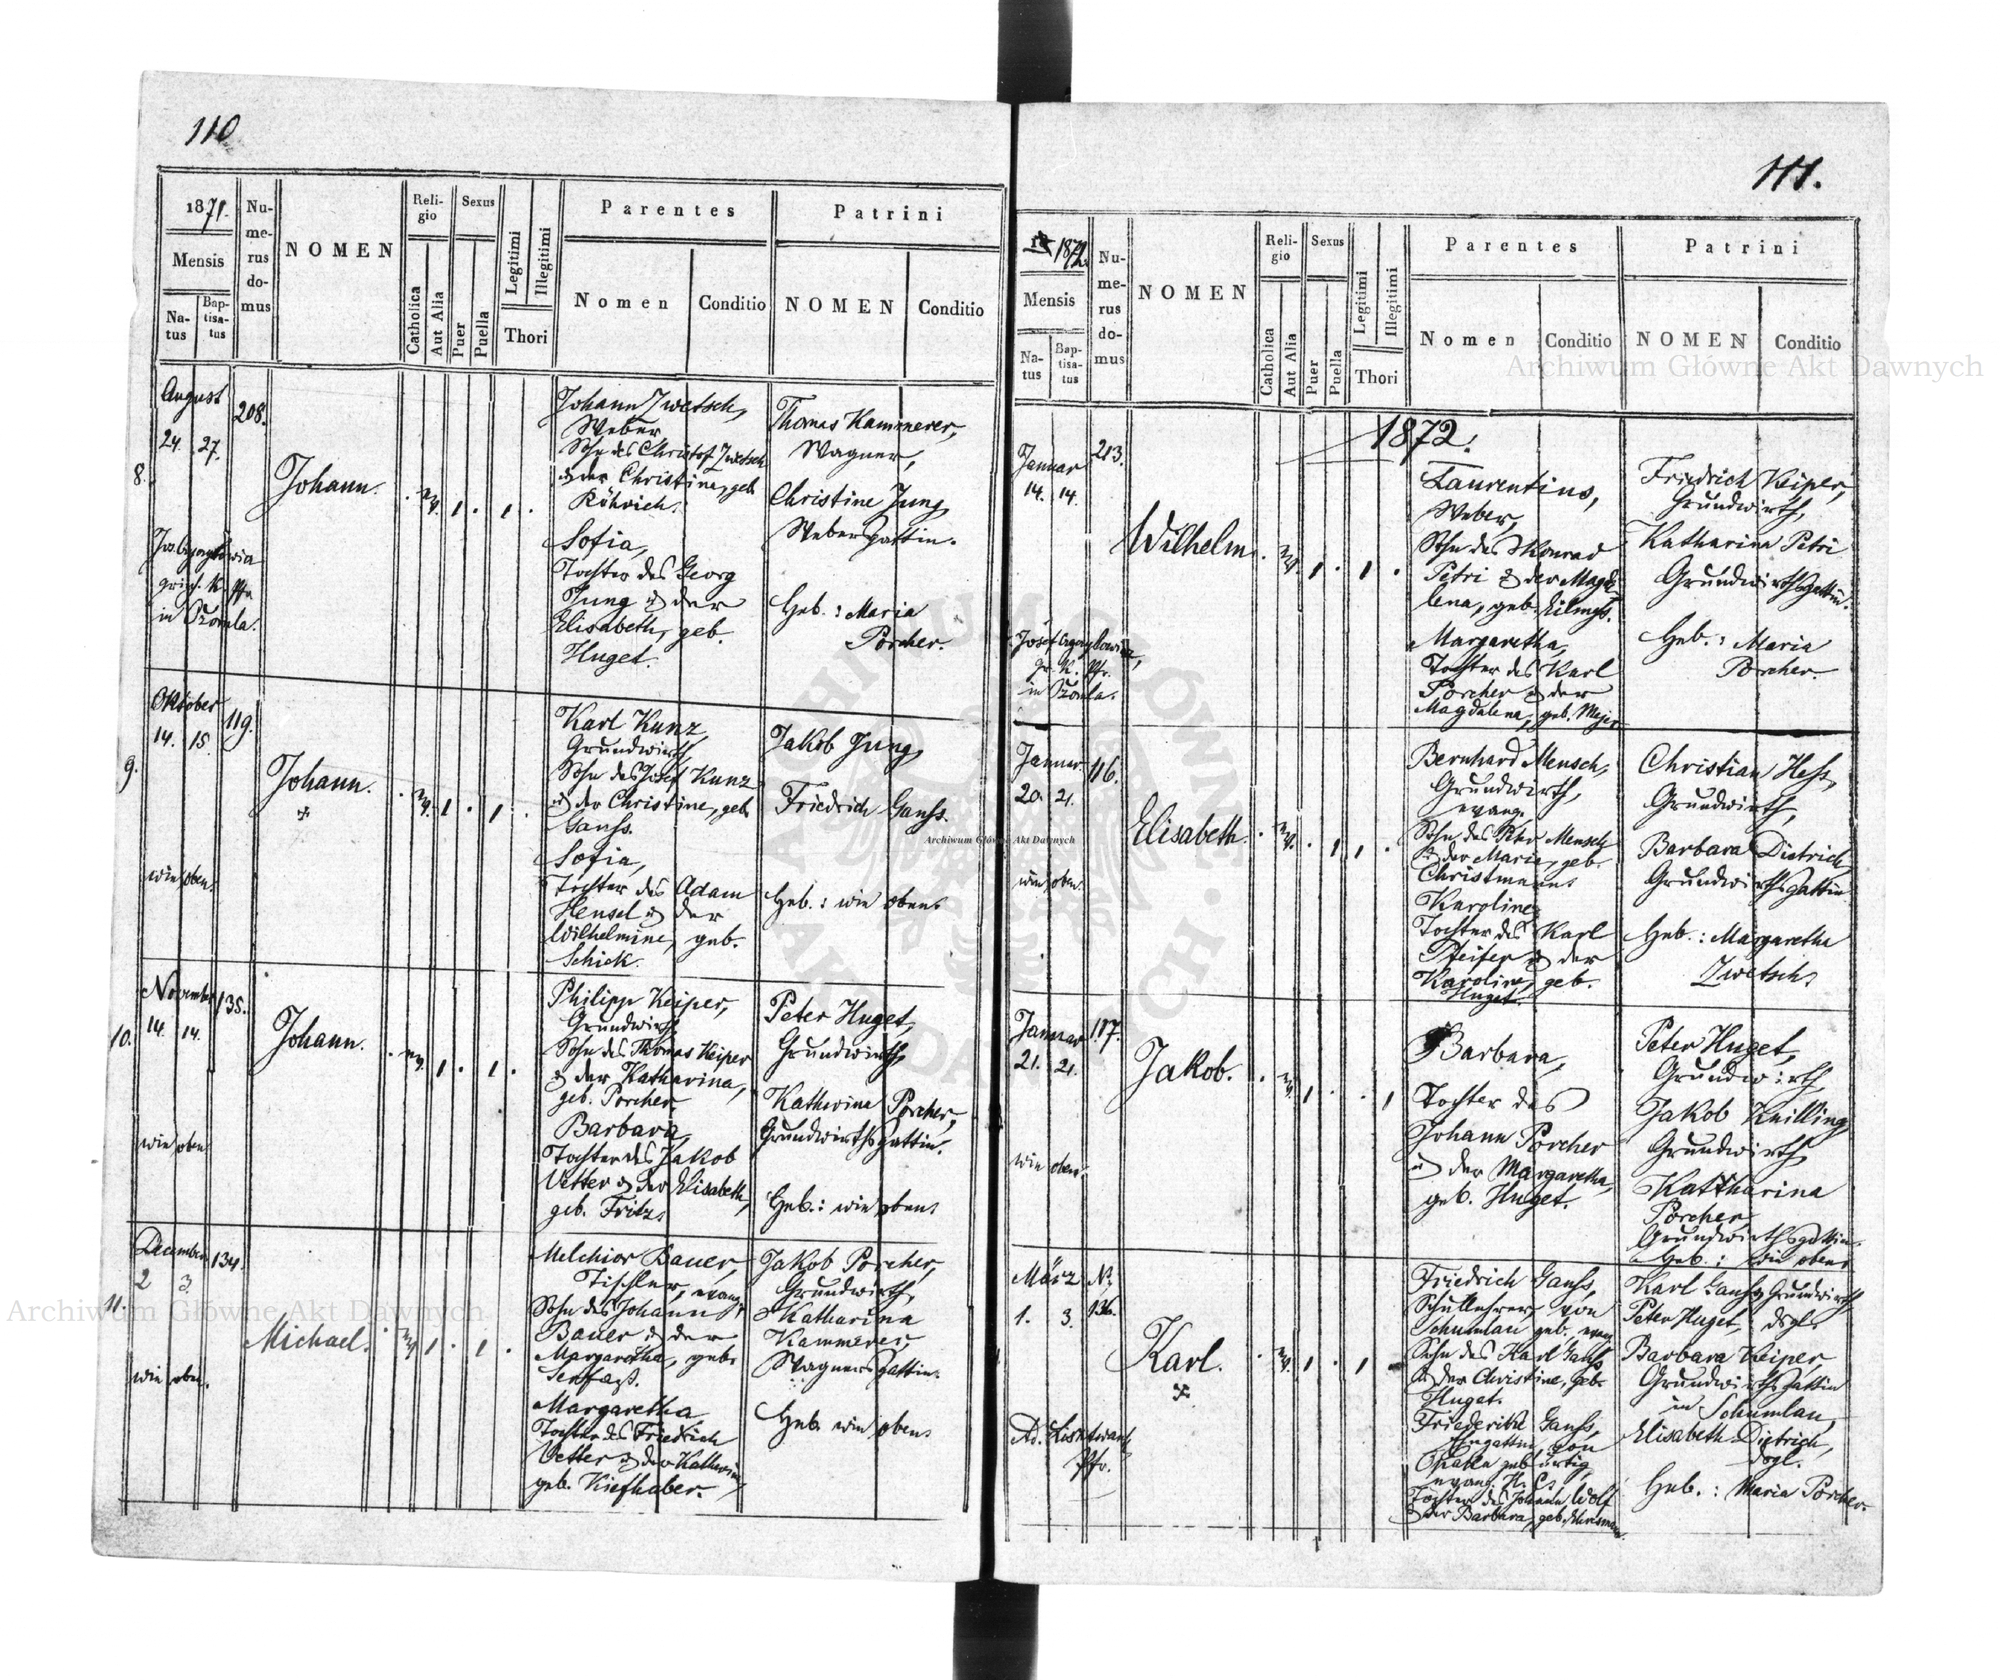 110
1871.
Mensis
Na-
tus
Bap-
tisa-
tus
Nu-
me-
rus
do-
mus
NOMEN
Reli-
gio
Catholica
Aut Alia
Sexus
Puer
Puella
Legitimi
Illegitimi
Thori
Parentes
Nomen
Conditio
Patrini
NOMEN
Conditio
8.
August
24. 27.
208.
in
Johann.
Johann Zwetsch,
Weber
Sohn des Christof Zwetsch
u. der Christine, geb.
Röhrich.
Sofia,
Tochter des Georg
Jung u. der
Elisabeth, geb.
Huget.
Thomas Kammerer,
Wagner,
Christine Jung,
Webersgattin.
Heb.: Maria
Porcher.
9.
Oktober
14. 15.
119.
wie oben.
Johann.
Karl Kunz,
Grundwirth,
Sohn des Josef Kunz
u. der Christine, geb.
Ganss.
Sofia,
Tochter des Adam
Hensel u. der
Wilhelmine, geb.
Schick.
Jakob Jung,
Friedrich Ganss.
Heb.: wie oben.
10.
November
14. 14.
135.
wie oben
Johann.
Philipp Keiper,
Grundwirth,
Sohn des Thomas Keiper
u. der Katharina,
geb. Porcher.
Barbara,
Tochter des Jakob
Vetter u. der Elisabeth,
geb. Fritz.
Peter Huget,
Grundwirth,
Katharina Porcher,
Grundwirthsgattin.
Heb.: wie oben.
11.
December
2 3.
134.
wie oben.
Michael.
Melchior Bauer,
Tischler, evang.
Sohn des Johann
Bauer u. der
Margaretha, geb.
Margaretha
Tochter des Friedrich
Vetter u. der Katharina
geb. Kiefhaber.
Jakob Porcher,
Grundwirth,
Katharina
Kammerer,
Wagnersgattin.
Heb. wie oben.
111.
1872.
Mensis
Na-
tus
Bap-
tisa-
tus
Nu-
me-
rus
do-
mus
NOMEN
Reli-
gio
Catholica
Aut Alia
Sexus
Puer
Puella
Legitimi
Illegitimi
Thori
Parentes
Nomen
Conditio
Patrini
NOMEN
Conditio
1872.
Januar
14. 14.
213.
Josef
gr. K. Pfr.
in
Wilhelm.
Laurentius,
Weber,
Sohn des Konrad
Petri u. der Magda
lena, geb.
Margaretha,
Tochter des Karl
Porcher u. der
Magdalena, geb.
Friedrich Keiper,
Grundwirth,
Katharina Petri
Grundwirthsgattin.
Heb.: Maria
Porcher.
Januar
20. 21.
116.
wie oben.
Elisabeth.
Bernhard Mensch,
Grundwirth,
evang.
Sohn des Mensch
u. der Maria, geb.
Christmann.
Karoline,
Tochter des Karl
Pfeifer u. der
Karoline, geb.
Huget.
Christian Hess,
Grundwirth,
Barbara Dietrich,
Grundwirthsgattin
Heb.: Margaretha
Zwetsch.
Januar
21. 21.
wie oben.
Jakob.
Barbara,
Tochter des
Johann Porcher
u. der Margaretha,
geb. Huget.
Peter Huget,
Grundwirth,
Jakob Knilling,
Grundwirth,
Kattharina
Porcher,
Grundwirthsgattin.
Heb.: wie oben
März
1. 3.
N.
136.
Pfr.
Karl.
Friedrich Ganss,
Schullehrer, von
Schumlau geb. evang.
Sohn des Karl Ganss
u. der Christine, geb.
Huget.
Friederike Ganss,
von
gebürtig,
evang. H. C.
Tochter des Johann Wolf
u. der Barbara, geb.
Karl Ganss, Grundwirth
Peter Huget, dsgl.
Barbara Keiper,
Grundwirthsgattin
in Schumlau,
Elisabeth Dietrich,
dsgl.
Heb.: Maria Porcher.
Archiwum Główne Akt Dawnych
Archiwum Główne Akt Dawnych
Archiwum Główne Akt Dawnych